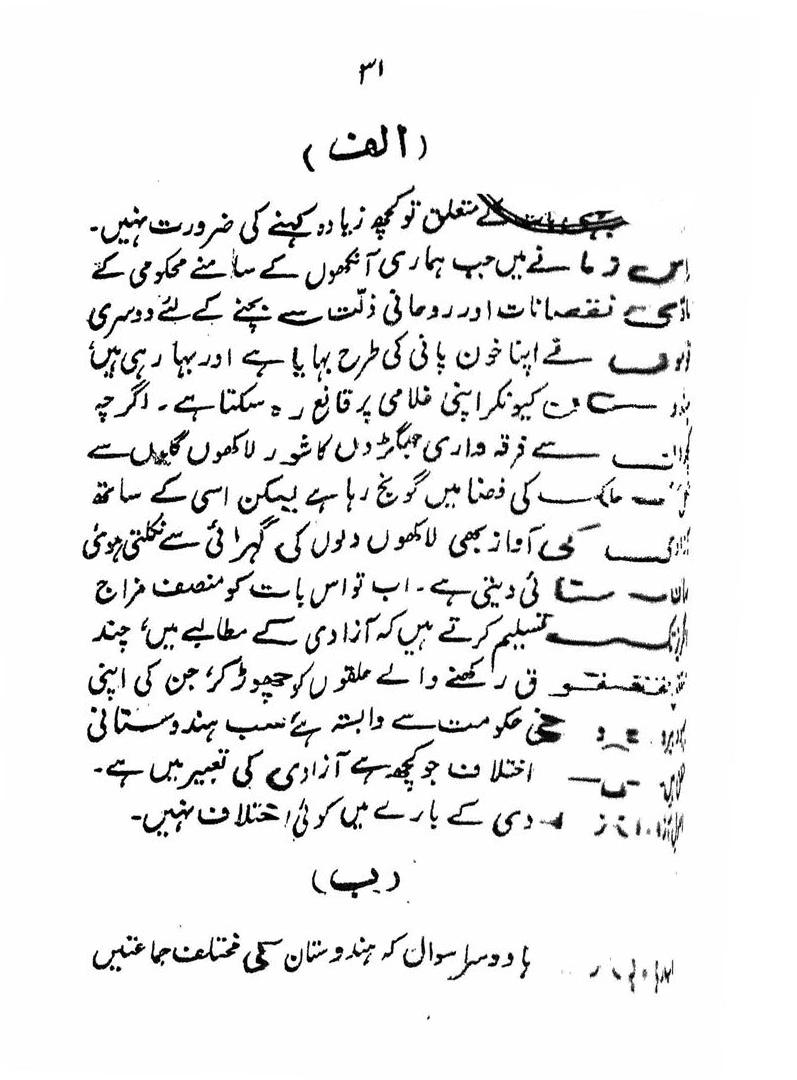 ۳۱
(الف)
کے متعلق تو کچھ زیادہ کہنے کی ضرورت نہیں۔
اس زمانے میں جب ہماری آنکھوں کے سامنے محکومی کے
نقصانات اور روحانی ذلّت سے بچنے کے لئے دوسری
نے اپنا خون پانی کی طرح بہایا ہے اور بہا رہی ہیں،
کیونکر اپنی غلامی پر قانع رہ سکتا ہے۔ اگرچہ
سے فرقہ واری جھگڑوں کا شور لاکھوں گلیوں سے
کی فضا میں گونج رہا ہے لیکن اسی کے ساتھ
کی آواز بھی لاکھوں دلوں کی گہرائی سے نکلتی ہوئی
سنائی دیتی ہے۔ اب تو اس بات کو منصف مزاج
تسلیم کرتے ہیں کہ آزادی کے مطالبے میں، چند
رکھنے والے حلقوں کو چھوڑ کر، جن کی اپنی
حکومت سے وابستہ ہے، سب ہندوستانی
اختلاف جو کچھ ہے آزادی کی تعبیر میں ہے۔
کے بارے میں کوئی اختلاف نہیں۔
(ب)
دوسرا سوال کہ ہندوستان کی مختلف جماعتیں